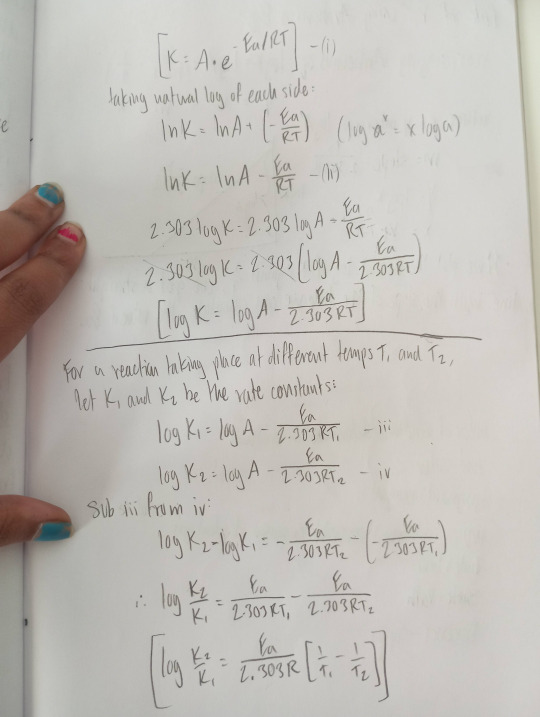 [K = A·e^-Ea/RT] -(i)
taking natural log of each side:
lnK = lnA + (-Ea/RT) (log a^x = x log a)
lnK = lnA - Ea/RT -(ii)
2.303 log K = 2.303 log A - Ea/RT
2.303 log K = 2.303 (log A - Ea/2.303RT)
[log K = log A - Ea/2.303RT]
For a reaction taking place at different temps T₁ and T₂,
let K₁ and K₂ be the rate constants:
log K₁ = log A - Ea/2.303RT₁ - iii
log K₂ = log A - Ea/2.303RT₂ - iv
Sub iii from iv:
log K₂ - log K₁ = - Ea/2.303RT₂ - (- Ea/2.303RT₁)
∴ log K₂/K₁ = Ea/2.303RT₁ - Ea/2.303RT₂
[log K₂/K₁ = Ea/2.303R [1/T₁ - 1/T₂]]